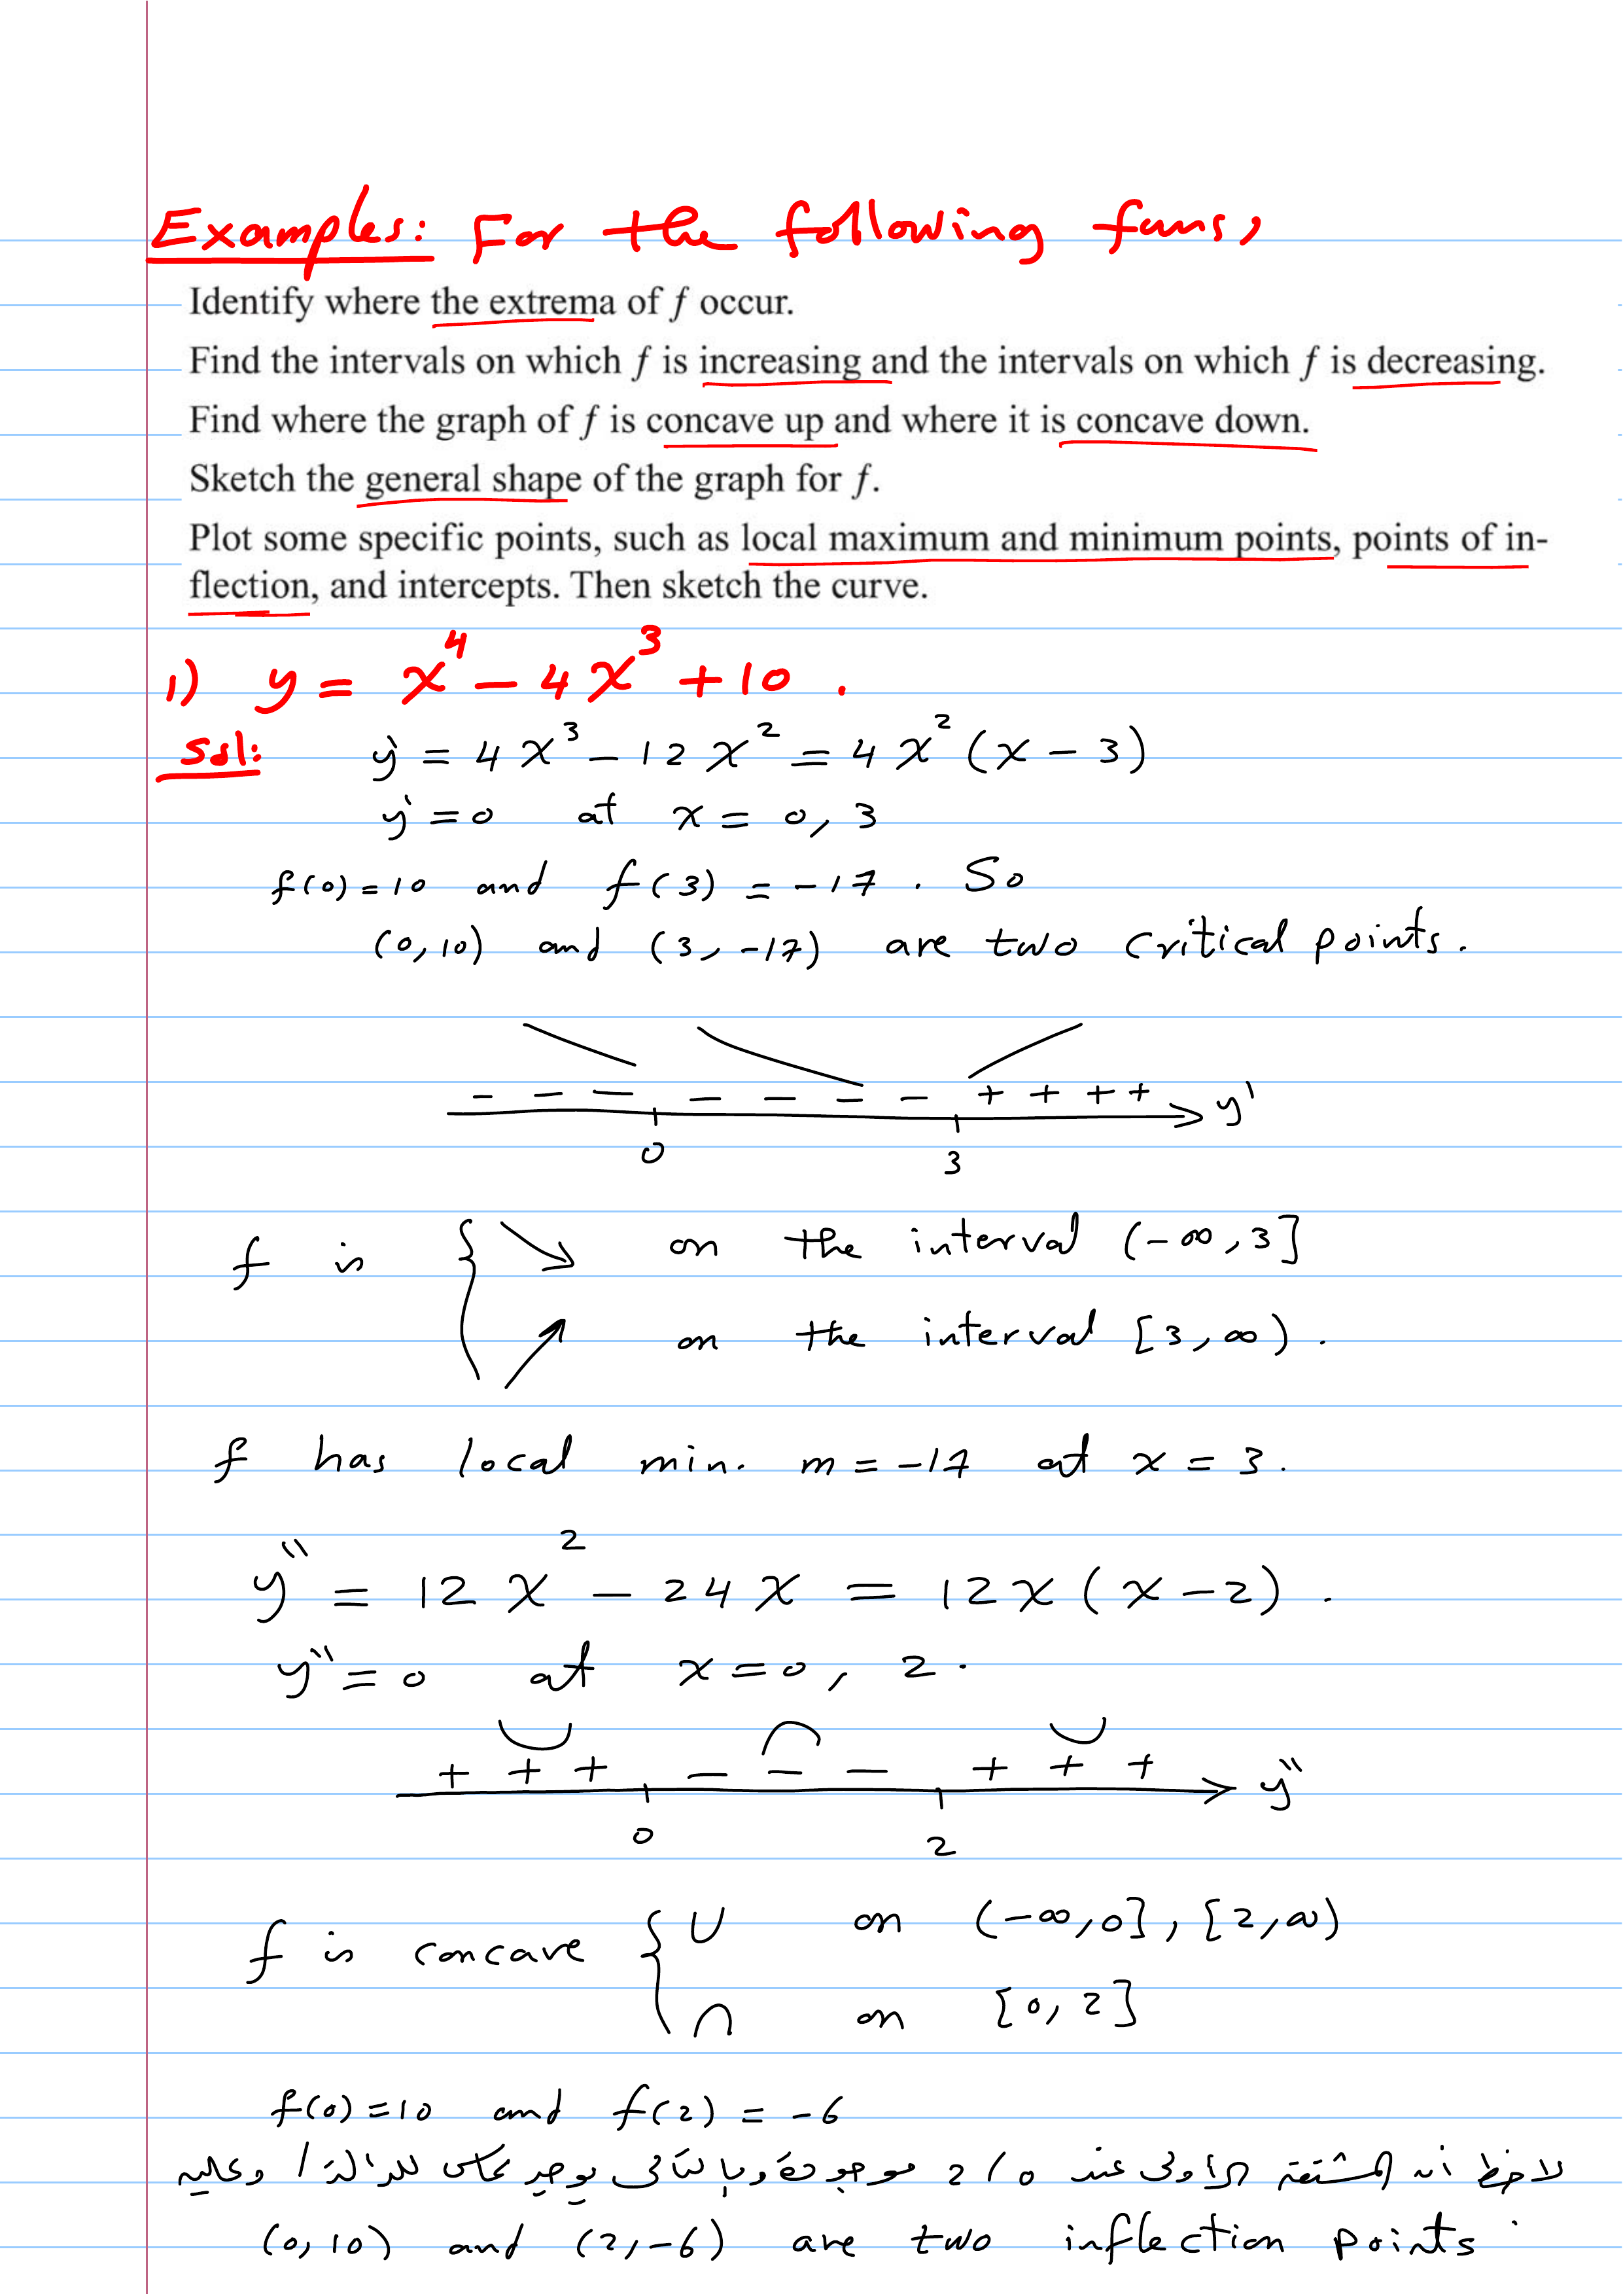 Examples: For the following funs,
Identify where the extrema of f occur.
Find the intervals on which f is increasing and the intervals on which f is decreasing.
Find where the graph of f is concave up and where it is concave down.
Sketch the general shape of the graph for f.
Plot some specific points, such as local maximum and minimum points, points of in-
flection, and intercepts. Then sketch the curve.
1) y = x⁴ - 4x³ + 10 .
Sol: y' = 4x³ - 12x² = 4x²(x - 3)
y' = 0 at x = 0, 3
f(0) = 10 and f(3) = -17 . So
(0, 10) and (3, -17) are two critical points.
- - - - - - - + + + + y'
0 3
f is { ↘ on the interval (-∞, 3]
↗ on the interval [3, ∞) .
f has local min. m = -17 at x = 3.
y'' = 12x² - 24x = 12x(x - 2) .
y'' = 0 at x = 0, 2 .
+ + + - - - + + + y''
0 2
f is concave { ∪ on (-∞, 0], [2, ∞)
∩ on [0, 2]
f(0) = 10 and f(2) = -6
لاحظ أن المشتقة الأولى عند 0 / 2 موجودة وبالتالي يوجد مماس للدالة / وعليه
(0, 10) and (2, -6) are two inflection points .